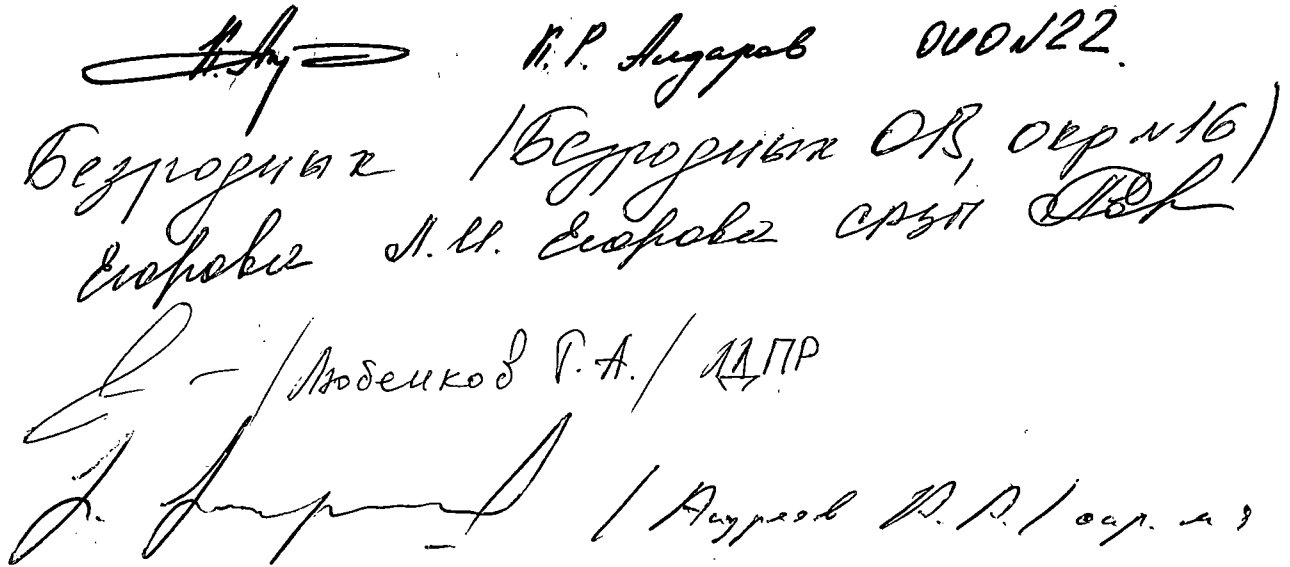 К.Р. Алдаров ОИО №22.
Безродных /Безродных ОВ, окр №16)
Егорова Л.И. Егорова СРЗП
/Любенков Г.А./ ЛДПР
/ Р.Р./ окр. №